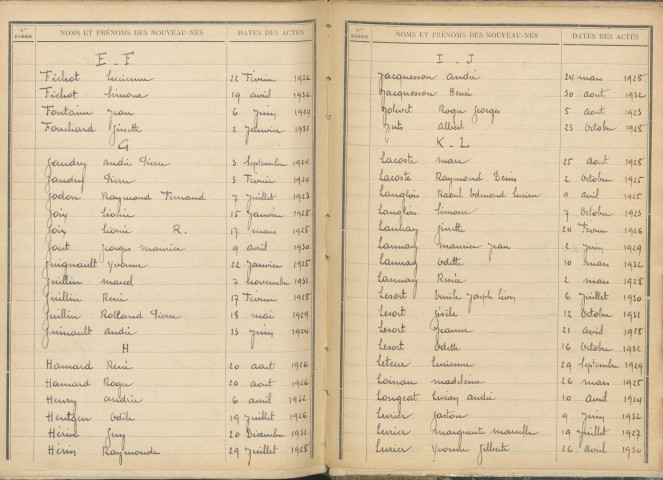 Nos D'ORDRE NOMS ET PRÉNOMS DES NOUVEAU-NÉS DATES DES ACTES
E - F
Fichot Lucienne 22 Février 1932
Fichot Simone 19 avril 1932
Fontaine Jean 6 Juin 1924
Fouchard Ginette 2 Janvier 1931
G
Gaudry andré Pierre 3 Septembre 1924
Gaudry Pierre 3 Février 1924
Godon Raymond Fernand 7 Juillet 1923
Léonie 15 Janvier 1928
Léonie R. 17 mars 1925
Georges maurice 9 avril 1930
Guignault Yvonne 22 Janvier 1925
Guillin marcel 7 novembre 1931
Guillin René 17 Février 1928
Guillin Rolland Pierre 18 mai 1929
Guinault andré 13 Juin 1924
H
Hamard René 20 aout 1926
Hamard Roger 20 aout 1926
Henry andrée 6 avril 1932
Odile 19 Juillet 1926
Guy 20 Décembre 1931
Raymonde 29 Juillet 1925
Nos D'ORDRE NOMS ET PRÉNOMS DES NOUVEAU-NÉS DATES DES ACTES
I - J
Jacquesson andré 24 mars 1928
Jacquesson Henri 30 aout 1932
Jolivet Roger Georges 5 aout 1923
albert 23 Octobre 1928
K - L
Lacoste marc 25 aout 1928
Lacoste Raymond Denis 2 Octobre 1925
Langlois Raoul Edmond Lucien 9 avril 1925
Langlois Simone 7 Octobre 1923
Launay Ginette 24 Février 1926
Launay maurice Jean 2 Juin 1929
Launay Odette 10 mars 1932
Launay Renée 2 mars 1928
Lesort Emile Joseph Léon 6 Juillet 1930
Lesort Gisèle 12 Octobre 1931
Lesort Jeanne 21 avril 1928
Lesort Odette 16 Octobre 1932
Leteur Lucienne 29 Septembre 1929
Loiseau madeleine 26 mars 1925
Lucien andré 10 avril 1924
Lurier Gaston 9 Juin 1932
Lurier marguerite marcelle 19 Juillet 1927
Lurier Yvonne Gilberte 26 avril 1930